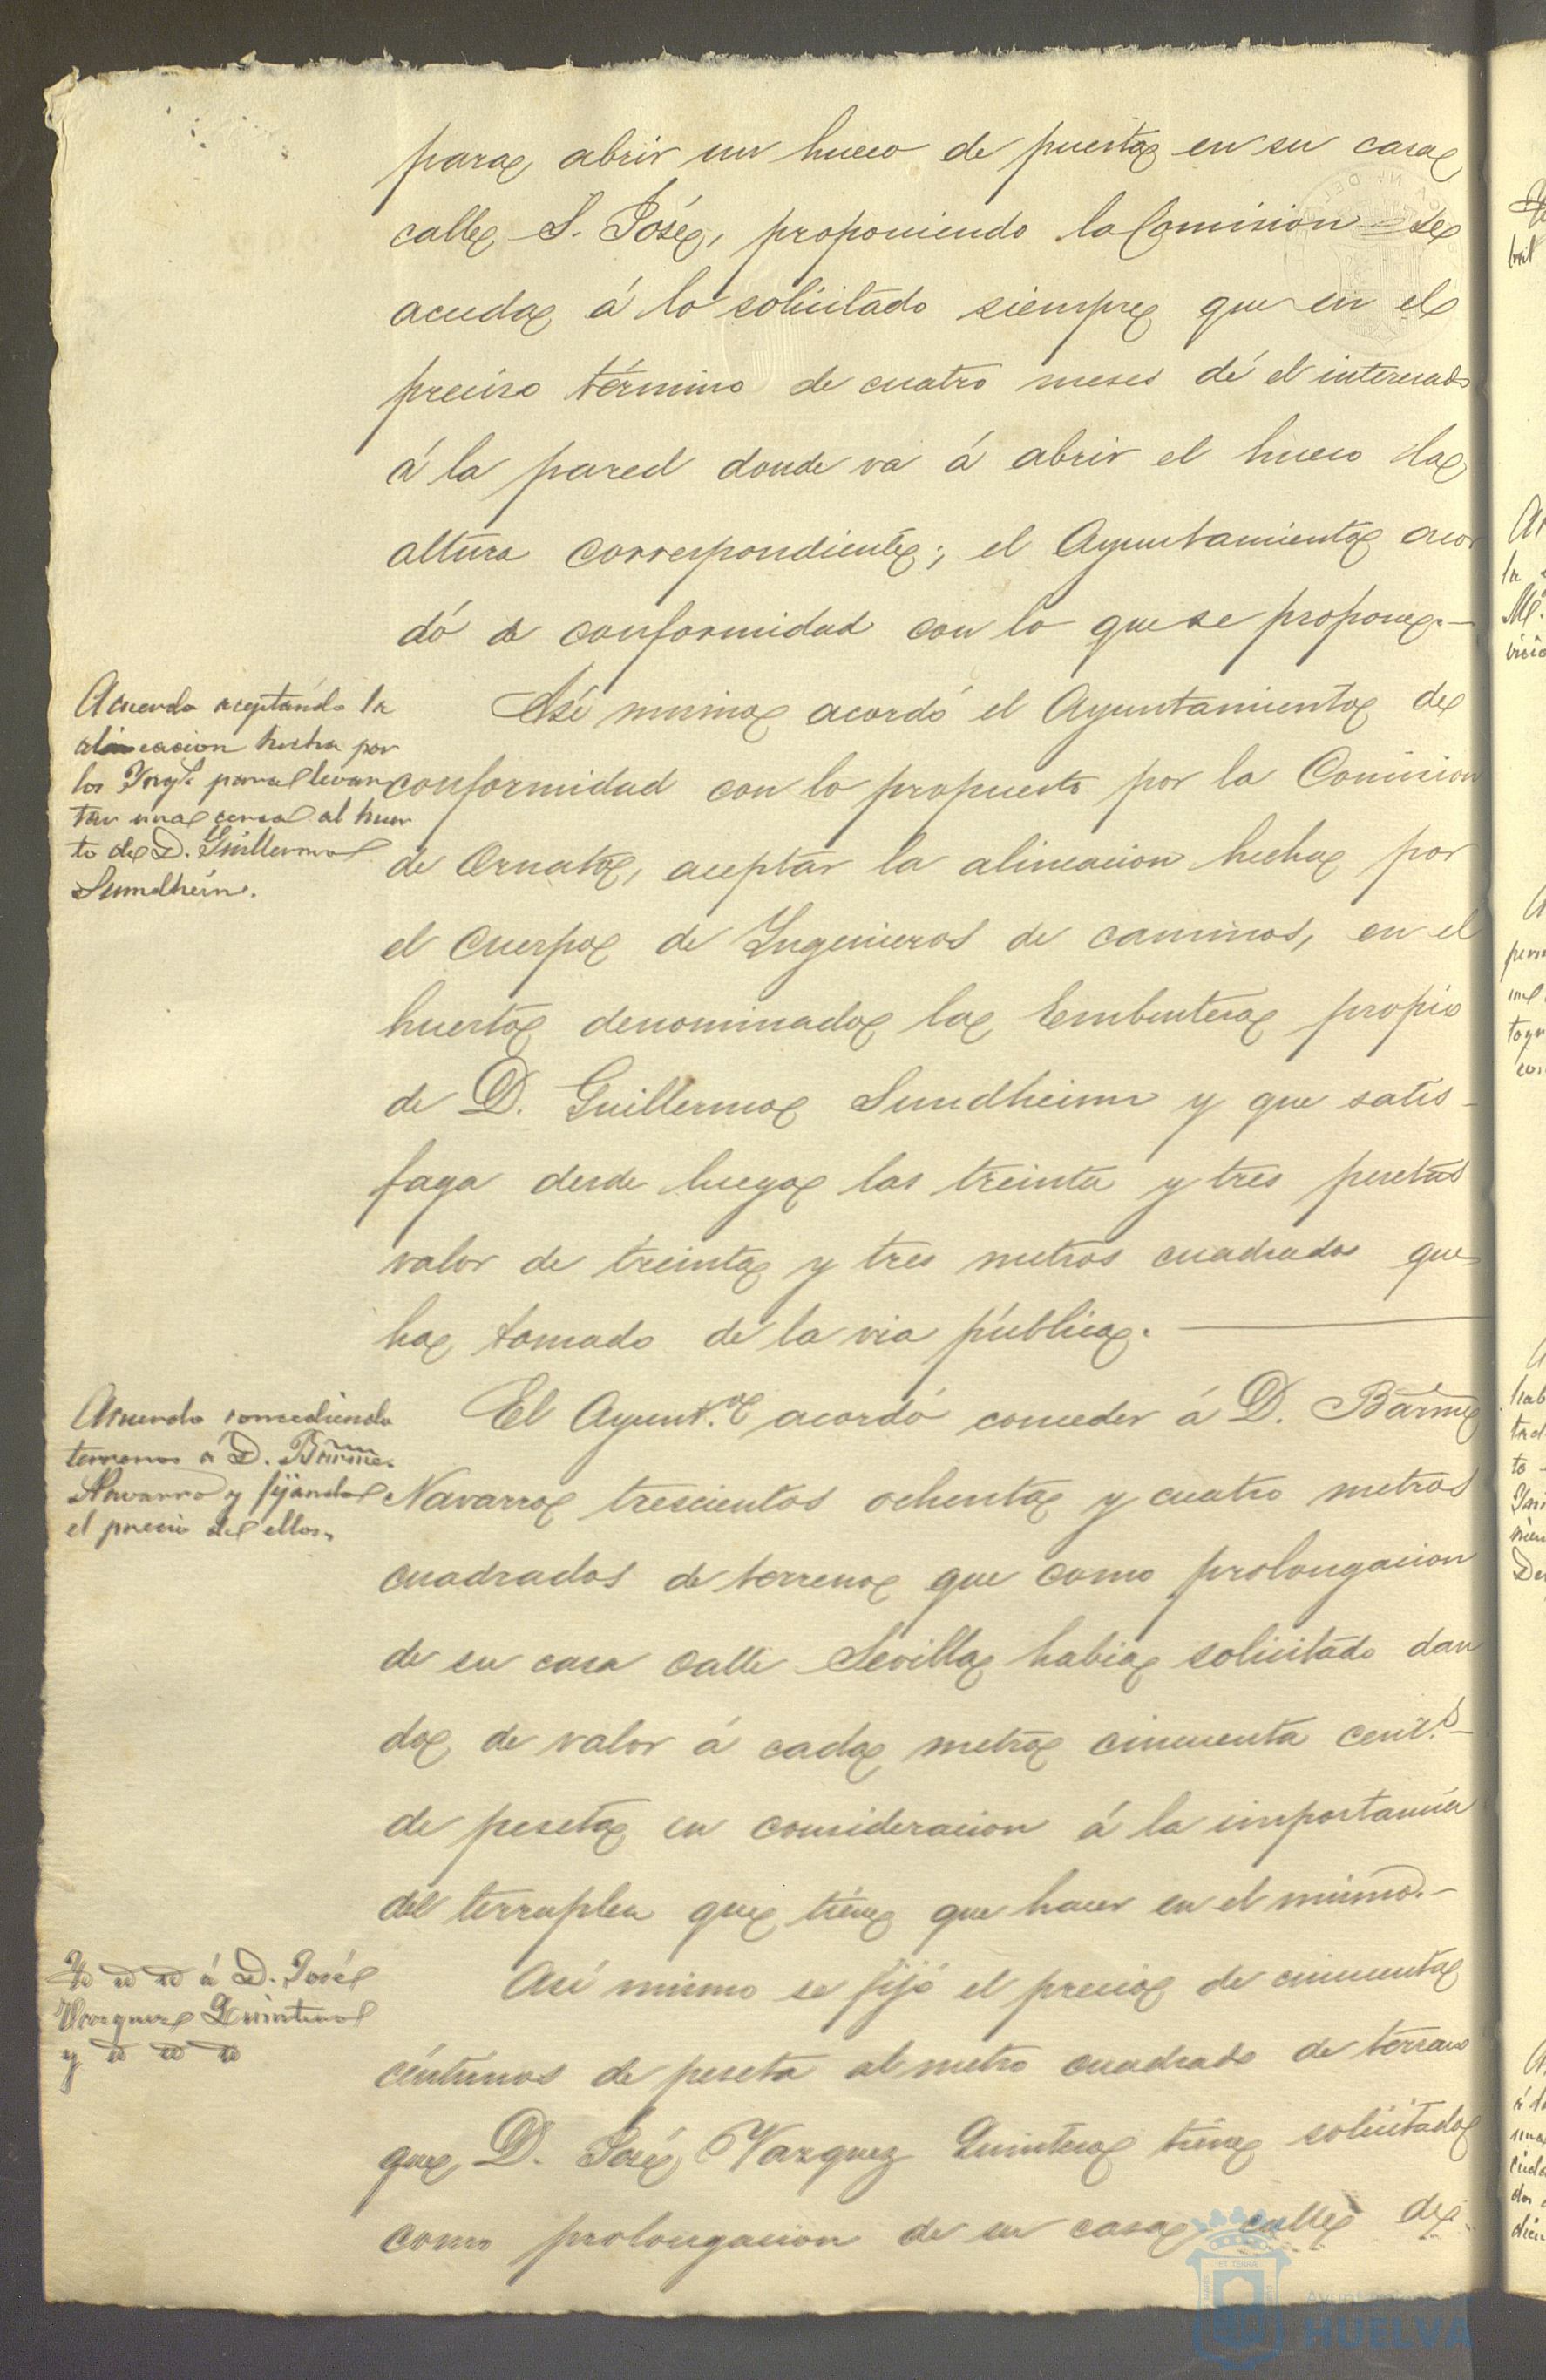 para abrir un hueco de puerta en su casa
calle S. José, proponiendo la Comision se
acceda á lo solicitado siempre que en el
preciso término de cuatro meses dé el interesado
á la pared donde va á abrir el hueco la
altura correspondiente; el Ayuntamiento acor
dó de conformidad con lo que se propone.—
Acuerdo aceptando la
alineacion hecha por
los Ings. para levan
tar una cerca al huer
to de D. Guillermo
Sundhein.
Así mismo acordó el Ayuntamiento de
conformidad con lo propuesto por la Comision
de Ornato, aceptar la alineacion hecha por
el cuerpo de Ingenieros de caminos, en el
huerto denominado la Embutera propio
de D. Guillermo Sundheim y que satis-
faga desde luego las treinta y tres pesetas
valor de treinta y tres metros cuadrados que
ha tomado de la via pública.
Acuerdo concediendo
terrenos á D. Bárme.
Navarro y fijando
el precio de ellos.
El Ayunt.º acordó conceder á D. Bárme
Navarro trescientos ochenta y cuatro metros
cuadrados de terreno que como prolongacion
de su casa calle Sevilla habia solicitado dan
do de valor á cada metro cincuenta cent.s
de peseta en consideracion á la importancia
del terraplen que tiene que hacer en el mismo.—
Id id id á D. José
Vazquez Quintero
y id id id
Así mismo se fijó el precio de cincuenta
céntimos de peseta al metro cuadrado de terreno
que D. José Vazquez Quintero tiene solicitado
como prolongacion de su casa calle de
Ayuntamiento de
HUELVA